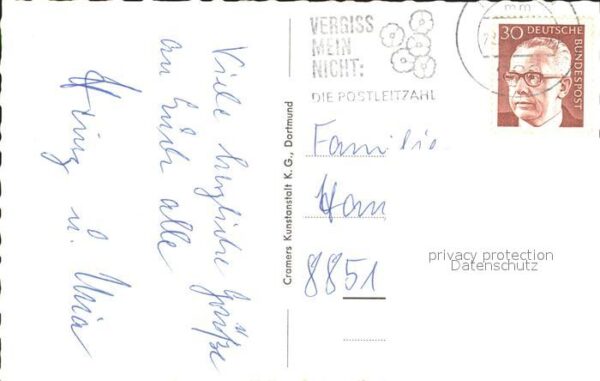 Viele herzliche Grüße
an Euch alle
Heinz u. Maria
Cramers Kunstanstalt K. G., Dortmund
VERGISS
MEIN
NICHT:
DIE POSTLEITZAHL
30 DEUTSCHE
BUNDESPOST
Familie
Han
8851
privacy protection
Datenschutz